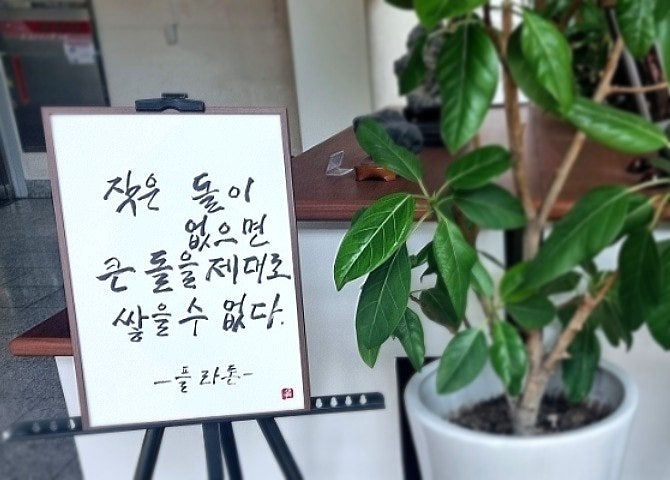 작은 돌이
없으면
큰 돌을 제대로
쌓을 수 없다.
-플라톤-